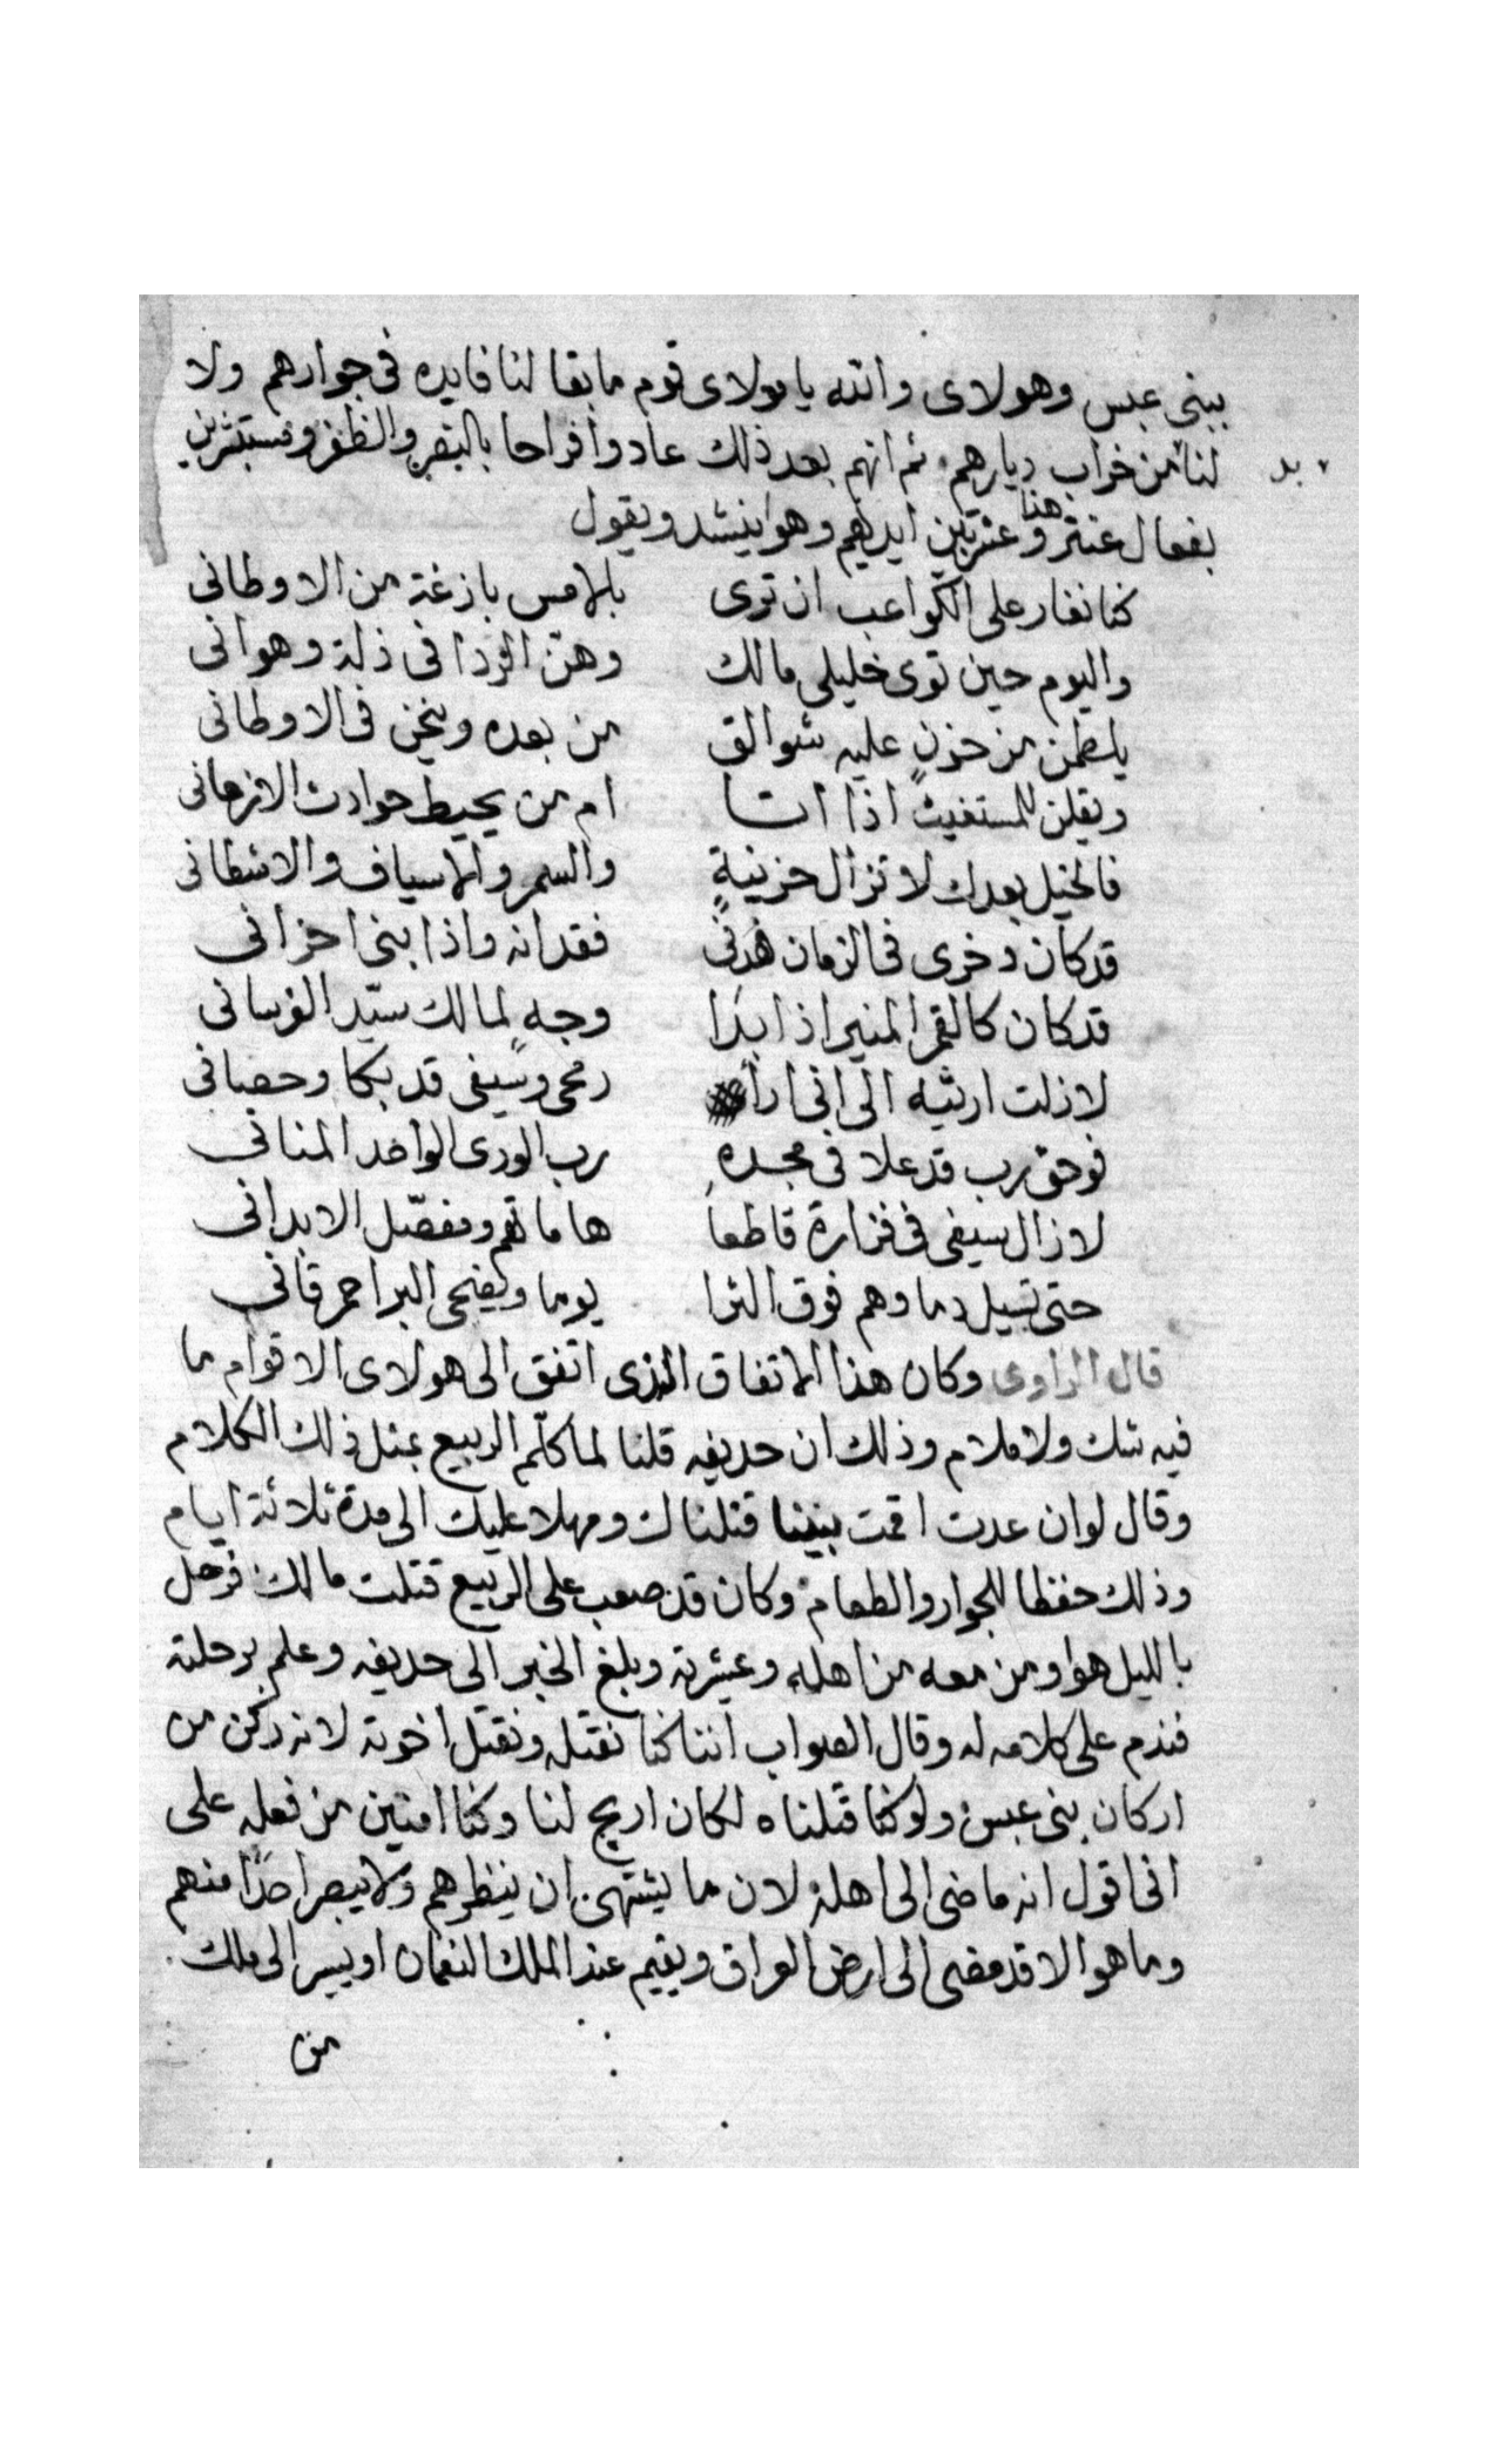 ببنى عبس وهولاى والله يا مولاى قوم ما بقا لنا فايده فى جوارهم ولا
بد
لنا من خراب ديارهم ثم انهم بعد ذلك عادوا فراحا بالنصر والظفر ومستبشرين
بفعال عنتر هذا وعنتر بين ايديهم وهوا ينشد ويقول
كنا نغار على الكواعب ان ترى بالامس بازغة من الاوطانى
واليوم حين توى خليلى مالك وهن الردا فى ذلة وهوانى
يلطمن من حزنٍ عليه شوالق من بعده وينحن فى الاوطانى
ويقلن للمستغيث اذا اتا ام من يحيط حوادث الازمانى
فالخيل بعدك لا تزال حزينةٍ والسمر والاسياف والاشطانى
قد كان ذخرى فى الزمان فهدنى فقدانه واذا بنى احزانى
قد كان كالقمر المنير اذا بدا وجهٍ لمالك سيّد الفرسانى
لا زلت ارثيه الى انى ارا رمحى وسيفى قد بكا وحصانى
فوحق رب قد علا فى مجده رب الورى الواحد المنانى
لا زال سيفى فى فزارة قاطعا هاماتهم ومفصّل الابدانى
حتى تسيل دماوهم فوق الثرا يوما ويضحى البر احمر قانى
قال الراوى وكان هذا الاتفاق الذى اتفق الى هولاى الاقوام ما
فيه شك ولا ملام وذلك ان حديفه قلنا لما كلّم الربيع بمثل ذلك الكلام
وقال لو ان عدت اقمت بيننا قتلناك ومهلا عليك الى مدة ثلاثة ايام
وذلك حفظا للجوار والطعام وكان قد صعب على الربيع قتلت مالك فرحل
بالليل هوا ومن معه من اهله وعيشرته وبلغ الخبر الى حديفه وعلم برحلته
فندم على كلامه له وقال الصواب اننا كنا نقتله ونقتل اخوته لانه ركن من
اركان بنى عبس ولو كنا قتلناه لكان اريح لنا وكنا امنين من فعله على
انى اقول انه ما ضى الى اهله لان ما يشتهى ان ينظرهم ولا يبصر احدًا منهم
وما هوا الا قد مضى الى ارض العراق ويقيم عند الملك النعمان او يسير الى ملك
من